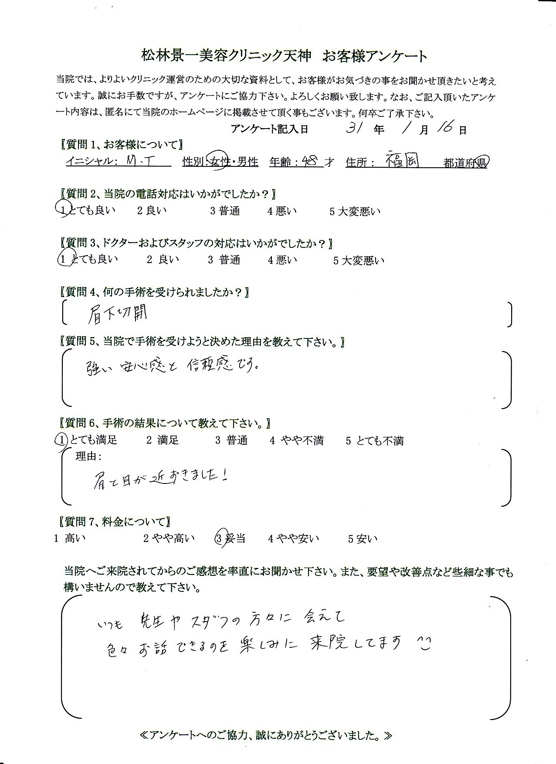 松林景一美容クリニック天神　お客様アンケート
当院では、よりよいクリニック運営のための大切な資料として、お客様がお気づきの事をお聞かせ頂きたいと考え
ています。誠にお手数ですが、アンケートにご協力下さい。よろしくお願い致します。なお、ご記入頂いたアンケ
ート内容は、匿名にて当院のホームページに掲載させて頂く事もございます。何卒ご了承下さい。
アンケート記入日　31 年 1 月 16 日
〖質問1、お客様について〗
イニシャル： M.T　性別：女性・男性　年齢：48 才　住所： 福岡　都道府県
〖質問2、当院の電話対応はいかがでしたか？〗
1 とても良い　2 良い　3 普通　4 悪い　5 大変悪い
〖質問3、ドクターおよびスタッフの対応はいかがでしたか？〗
1 とても良い　2 良い　3 普通　4 悪い　5 大変悪い
〖質問4、何の手術を受けられましたか？〗
眉下切開
〖質問5、当院で手術を受けようと決めた理由を教えて下さい。〗
強い安心感と信頼感です。
〖質問6、手術の結果について教えて下さい。〗
1 とても満足　2 満足　3 普通　4 やや不満　5 とても不満
理由：
眉と目が近ずきました！
〖質問7、料金について〗
1 高い　2 やや高い　3 妥当　4 やや安い　5 安い
当院へご来院されてからのご感想を率直にお聞かせ下さい。また、要望や改善点など些細な事でも
構いませんので教えて下さい。
いつも 先生や スタッフの方々に 会えて
色々 お話できるのを 楽しみに 来院してます
≪アンケートへのご協力、誠にありがとうございました。≫